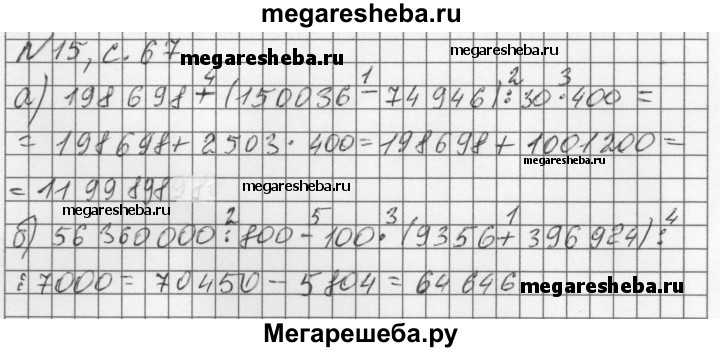 megaresheba.ru
N 15, с. 67
megaresheba.ru
megaresheba.ru
4 1 2 3
а) 198 698 + (150036 - 74 946) : 30 · 400 =
= 198 698 + 2503 · 400 = 198 698 + 1001200 =
megaresheba.ru
= 11 99 898
megaresheba.ru
megaresheba.ru
2 5 3 1 4
б) 56 360 000 : 800 - 100 · (9356 + 396 924) :
: 7000 = 70 450 - 5 804 = 64 646
megaresheba.ru
Мегарешеба.ру